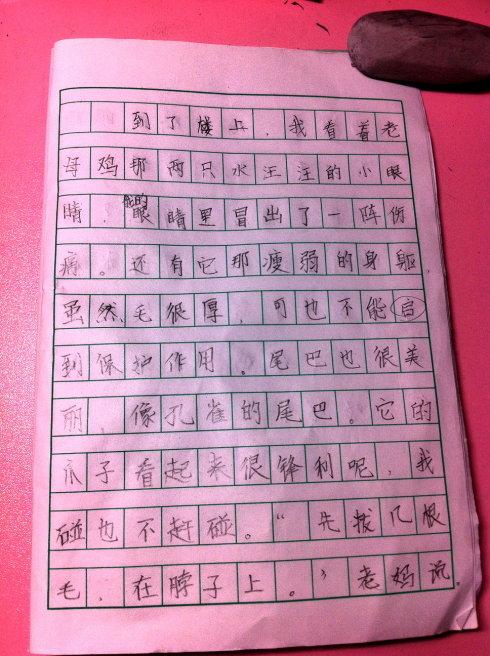 到了楼上，我看着老
母鸡那两只水汪汪的小眼
睛，它的眼睛里冒出了一阵伤
痛。还有它那瘦弱的身躯，
虽然毛很厚，可也不能启
到保护作用。尾巴也很美
丽，像孔雀的尾巴。它的
爪子看起来很锋利呢，我
碰也不赶碰。“先拨几根
毛，在脖子上。”老妈说